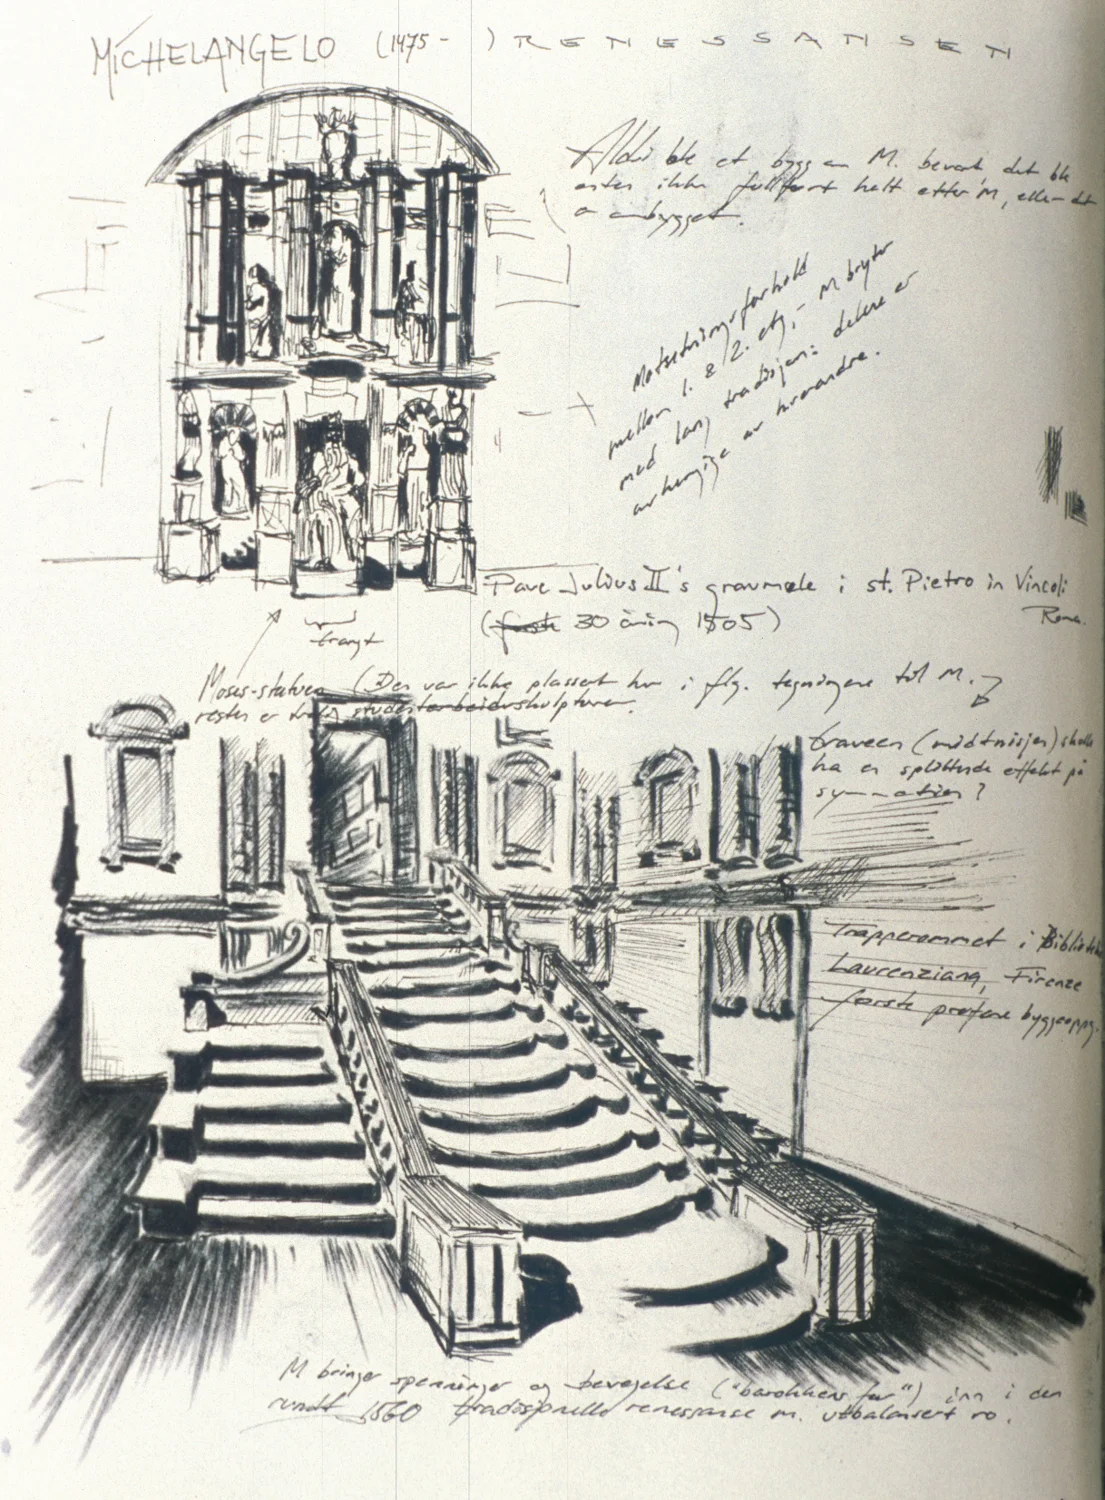 MICHELANGELO (1475 - ) RENESSANSEN
Aldri ble et bygg av M. bevart det ble
enten ikke fullført helt etter M, eller det
ombygget.
Motsetningsforhold
mellom 1. & 2. etg, - M bryter
med lang tradisjon: delene er
avhengige av hverandre.
Pave Julius II's gravmæle i st. Pietro in Vincoli
Roma.
(første 30 åring 1505)
trangt
Moses-statuen (Den var ikke plassert her i flg. tegningene til M.
resten er studentarbeiderskulpturer.
traveen (midtnisjen) skulle
ha en splittende effekt på
symmetrien?
Trapperommet i Biblioteka
Laurenziana, Firenze
første profane byggeoppg.
M bringer spenninger og bevegelse ("barokkens far") inn i den
rundt 1560 tradisjonelle renessanse m. utbalansert ro.